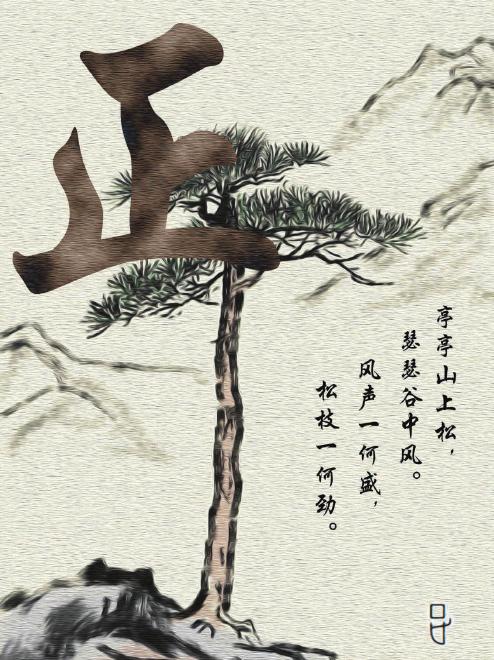 正
亭亭山上松，
瑟瑟谷中风。
风声一何盛，
松枝一何劲。